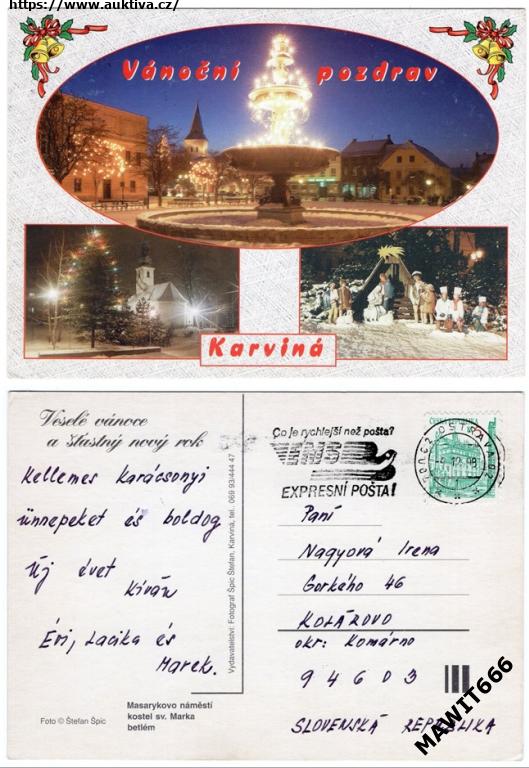 https://www.auktiva.cz/
Vánoční pozdrav
Karviná
Veselé vánoce
a šťastný nový rok
Kellemes Karácsonyi
ünnepeket és boldog
Új évet
Kíván
Évi, Lacika és
Marek.
Foto © Štefan Špic
Masarykovo náměstí
kostel sv. Marka
betlém
Vydavatelství: Fotograf Špic Štefan, Karviná, tel. 069 93/444 47
Co je rychlejší než pošta?
EMS
EXPRESNÍ POŠTA!
OSTRAVA
Paní
Nagyová Irena
Gorkého 46
KOLÁROVO
okr: Komárno
94603
SLOVENSKÁ REPUBLIKA
MAWIT666